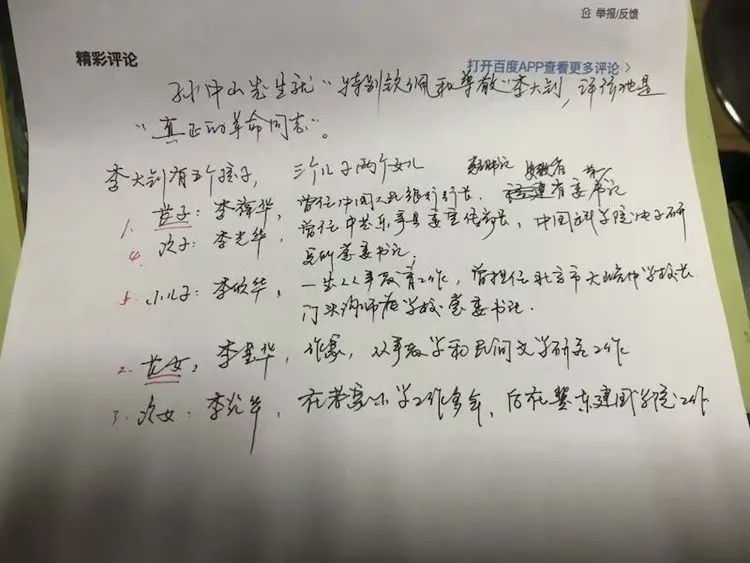 举报/反馈
精彩评论
打开百度APP查看更多评论 >
孙中山先生就"特别钦佩和尊敬"李大钊,评价他是
"真正的革命同志"。
李大钊有五个孩子, 三个儿子两个女儿
1. 长子:李葆华, 曾任中国人民银行行长, 省委书记
4. 次子:李光华, 曾任中共乐亭县委宣传部长, 中国科学院电子研
究所党委书记;
5. 小儿子:李欣华, 一生从事教育工作, 曾担任北京市大峪中学校长
门头沟师范学校党委书记.
2. 长女:李星华, 作家, 从事教学和民间文学研究工作
3. 次女:李炎华, 在老家小学工作多年, 后在冀东建国学院工作